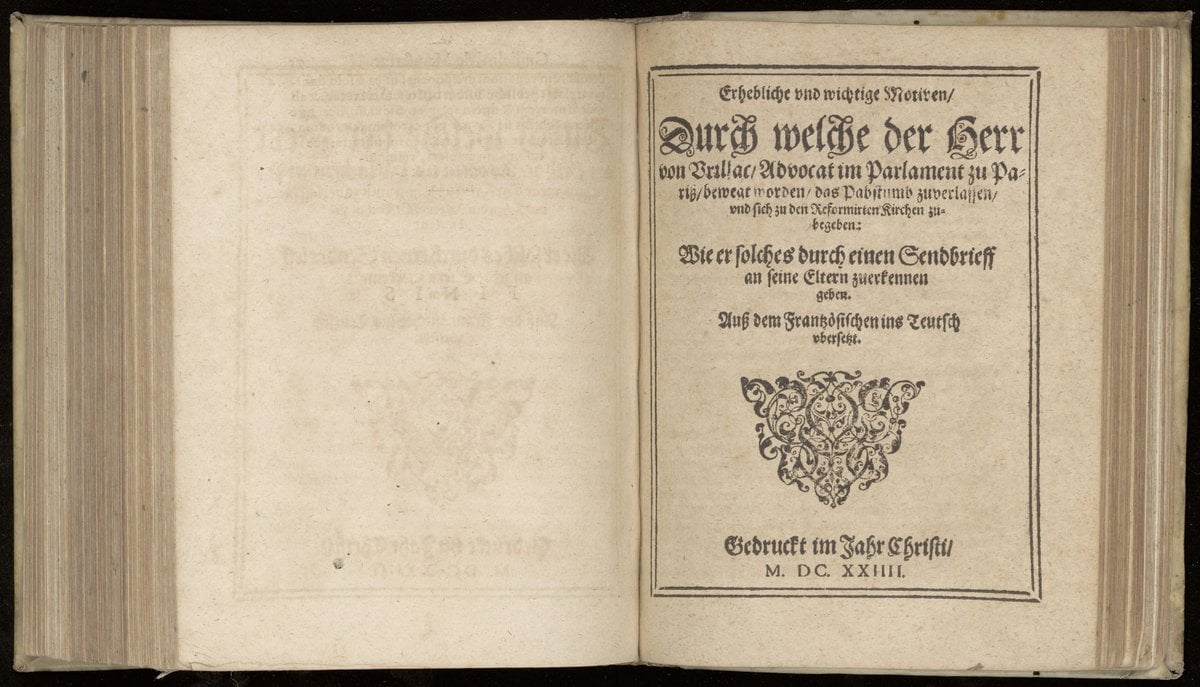 Erhebliche vnd wichtige Motiven/
Durch welche der Herr
von Vrillac/ Advocat im Parlament zu Pa-
riß/ bewegt worden/ das Pabstumb zuverlassen/
vnd sich zu den Reformirten Kirchen zu-
begeben:
Wie er solches durch einen Sendbrieff
an seine Eltern zuerkennen
geben.
Auß dem Frantzösischen ins Teutsch
vbersetzt.
Gedruckt im Jahr Christi/
M. DC. XXIIII.